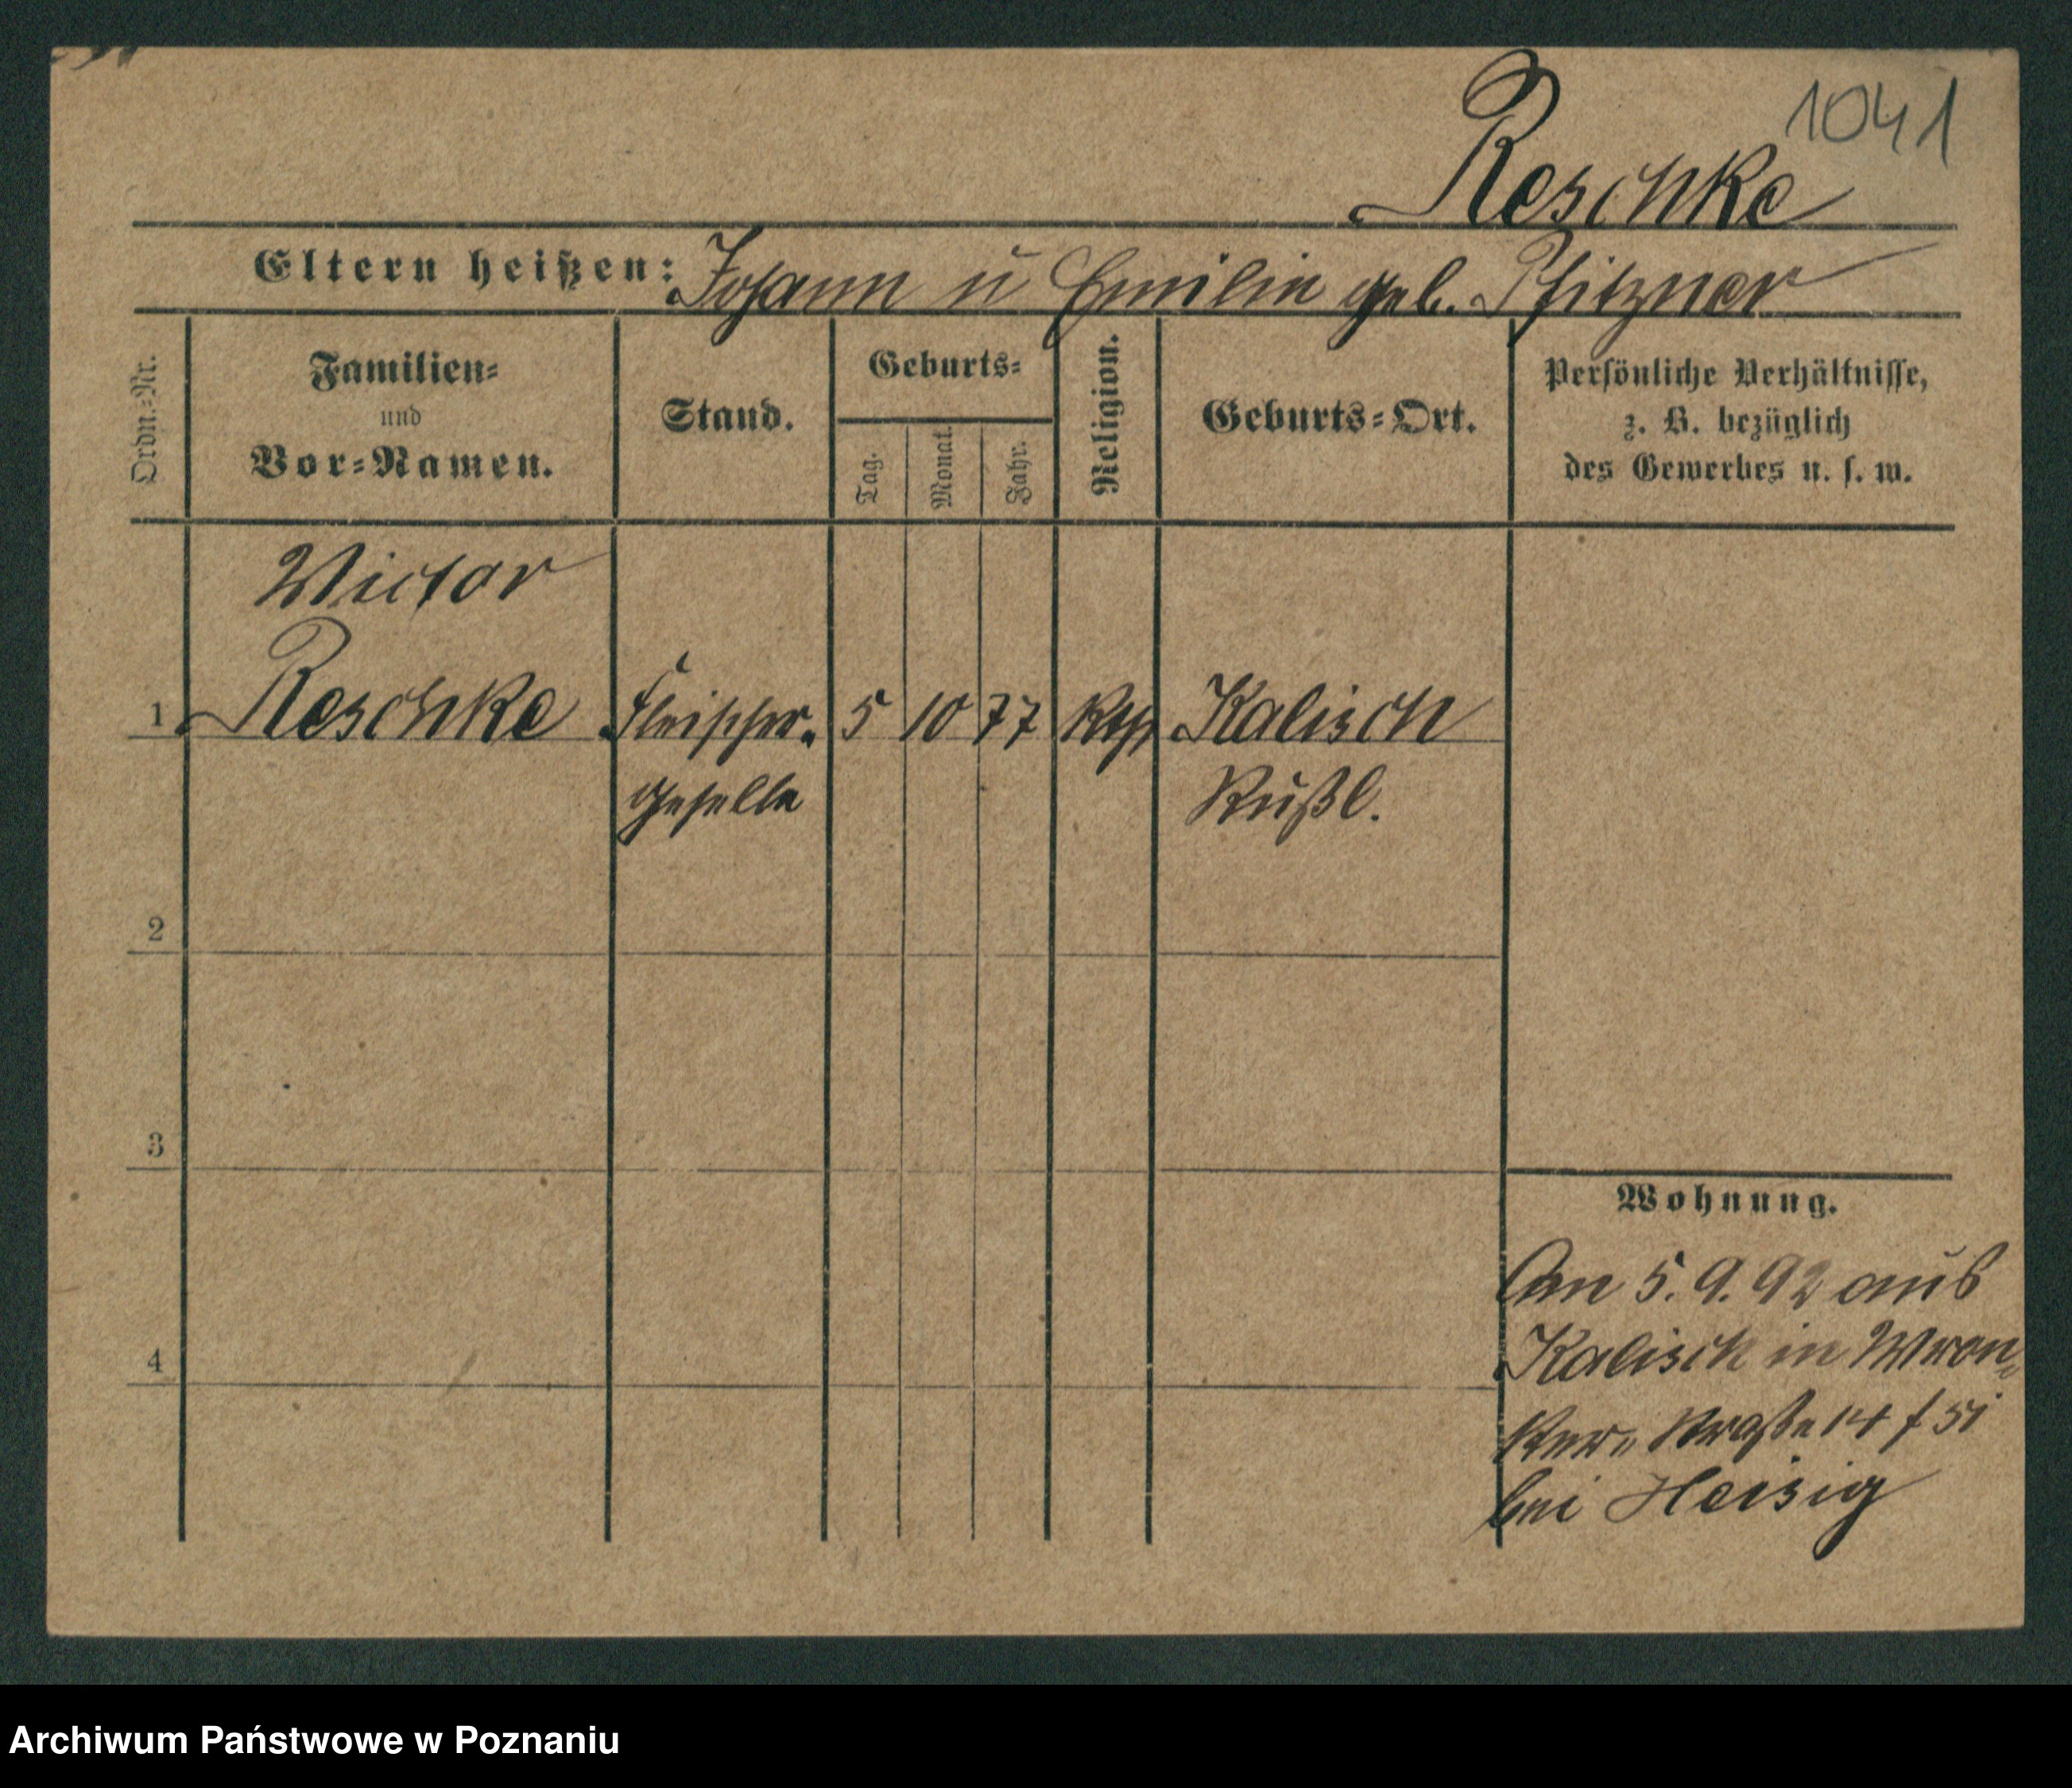 1041
Reschke
Eltern heißen: Johann u Emilie geb. Pfitzner
Ordn.-Nr.
Familien-
und
Vor-Namen.
Stand.
Geburts-
Tag.
Monat.
Jahr.
Religion.
Geburts-Ort.
Persönliche Verhältnisse,
z. B. bezüglich
des Gewerbes u. s. w.
Victor
1 Reschke Fleischer- 5 10 77 Kth Kalisch
geselle Rußl.
2
3
4
Wohnung.
An 5.9.92 aus
Kalisch in Wron-
ker- Straße 14
bei Heisig
Archiwum Państwowe w Poznaniu